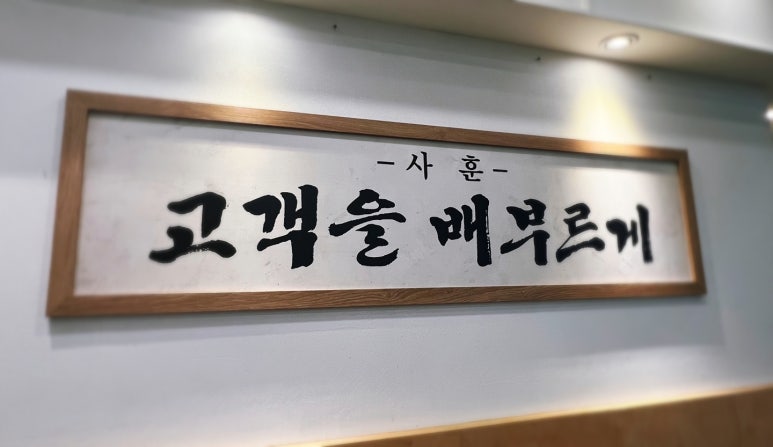 -사 훈-
고객을 배부르게